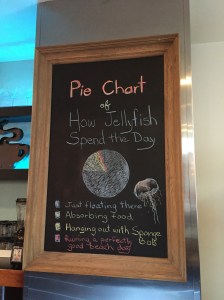 Pie Chart
of
How Jellyfish
Spend the Day
Just floating there
Absorbing Food
Hanging out with Sponge
Bob
Ruining a perfectly
good beach day